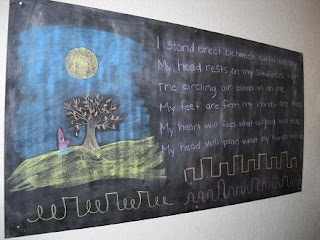 I stand erect between earth and
My head rests on my shoulders
The circling air blows in on me
My feet are firm, my hands are free
My heart will feel what is good and true
My head will plan what my hands